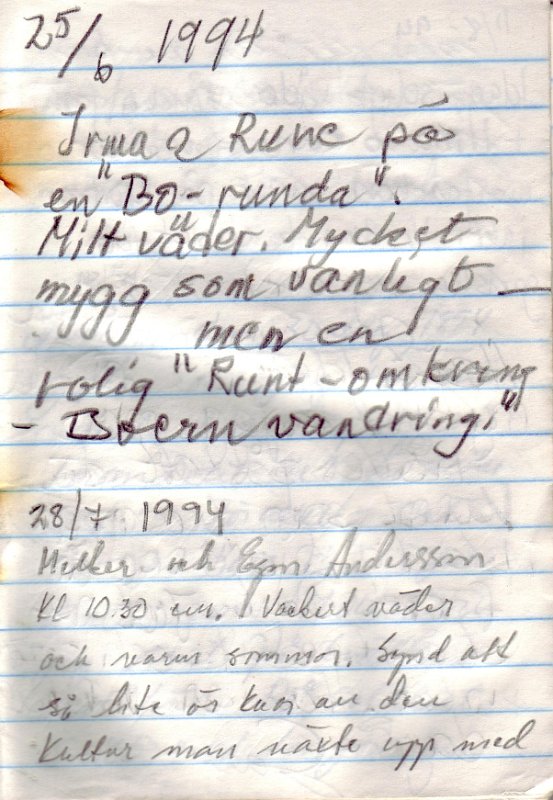 25/6 1994
Irma & Rune på
en "Bo-runda".
Milt väder. Mycket
mygg som vanligt –
men en
rolig "Runt-omkring
- Boernvandring."
28/7 1994
och Egon Andersson
Kl 10.30 em. Vackert väder
och varm sommar. Synd att
så lite är kvar av den
Kultur man växte upp med